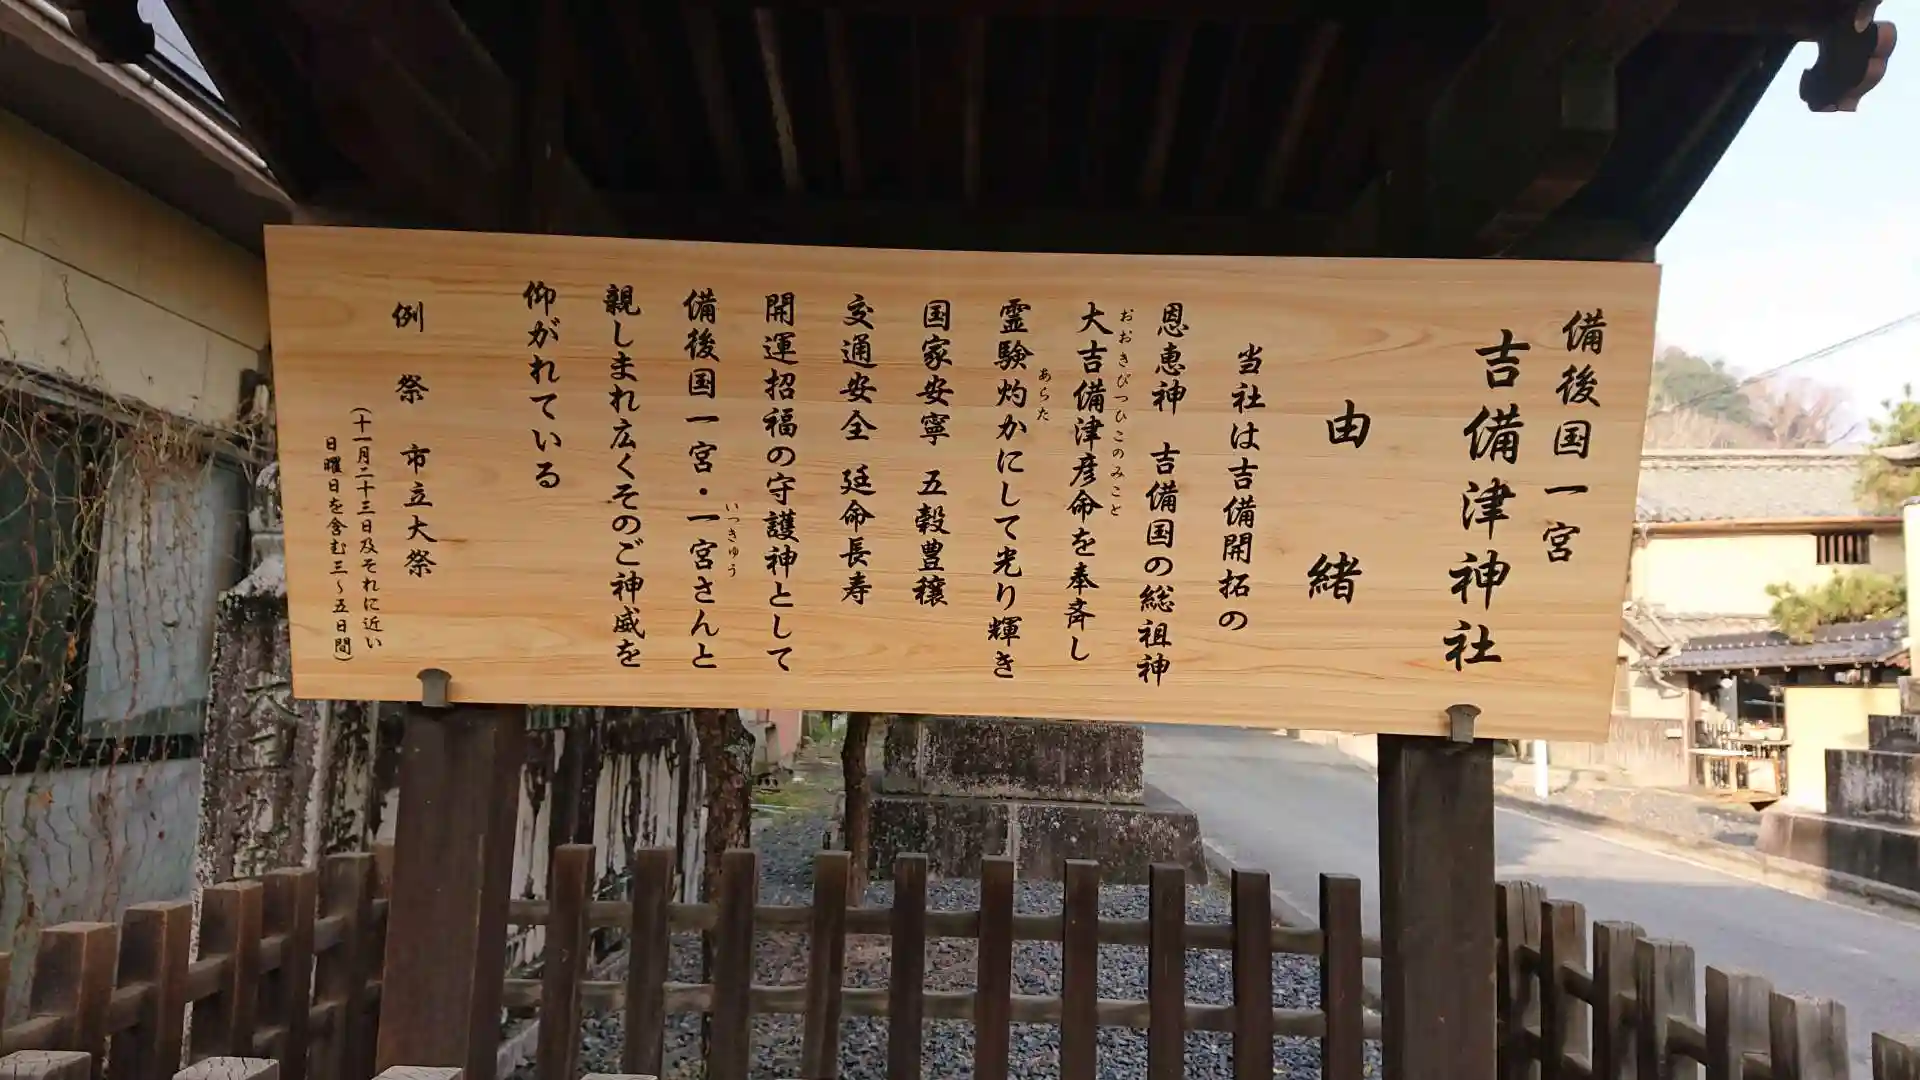 備後国一宮
吉備津神社
由緒
当社は吉備開拓の
恩恵神 吉備国の総祖神
大吉備津彦命を奉斉し
おおきびつひこのみこと
霊験灼かにして光り輝き
あらた
国家安寧 五穀豊穣
交通安全 延命長寿
開運招福の守護神として
備後国一宮・一宮さんと
いっきゅう
親しまれ広くそのご神威を
仰がれている
例祭 市立大祭
(十一月二十三日及それに近い
日曜日を含む三～五日間)